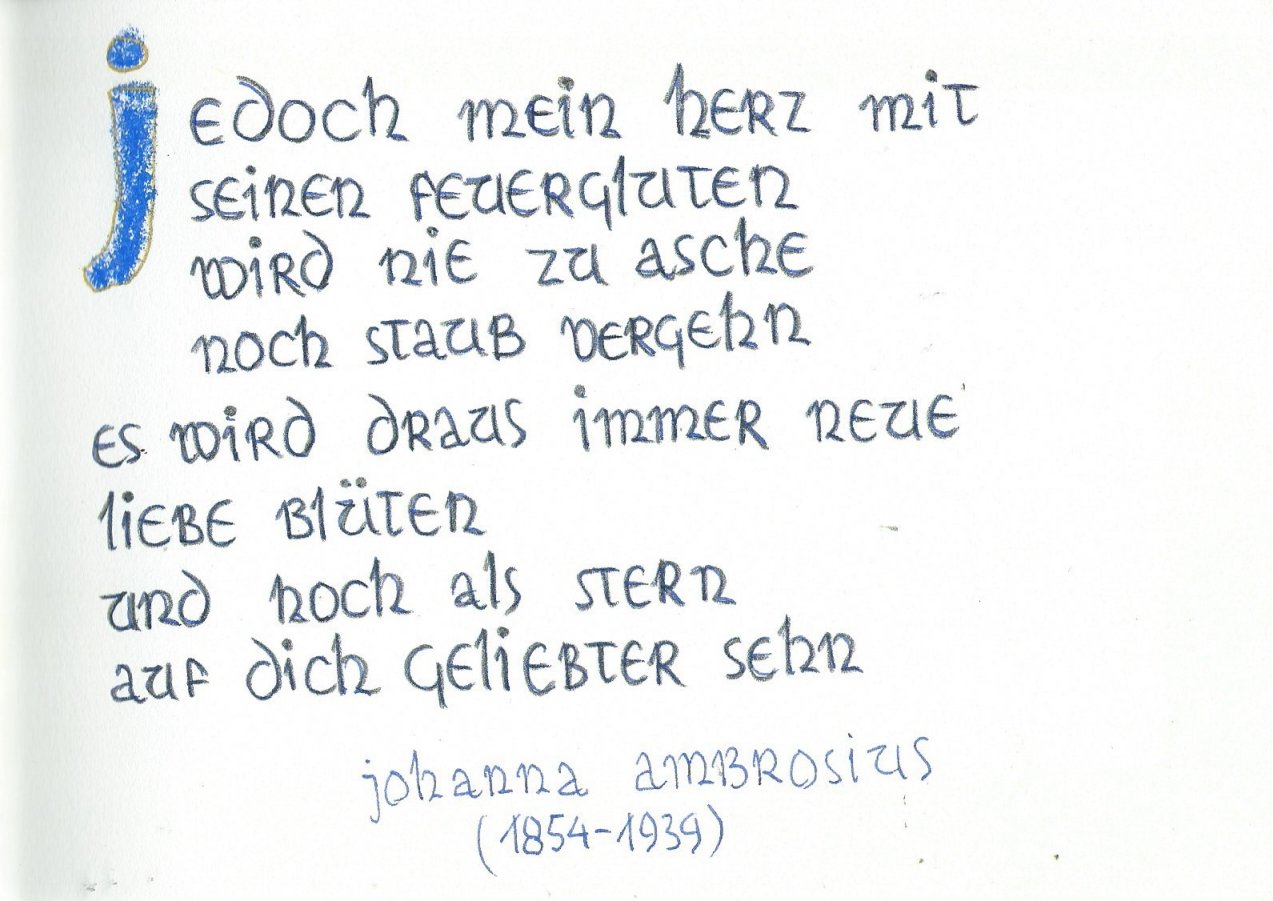 jedoch mein herz mit
seinen feuergluten
wird nie zu asche
noch staub vergehn
es wird draus immer neue
liebe blüten
und hoch als stern
auf dich geliebter sehn
johanna ambrosius
(1854-1939)